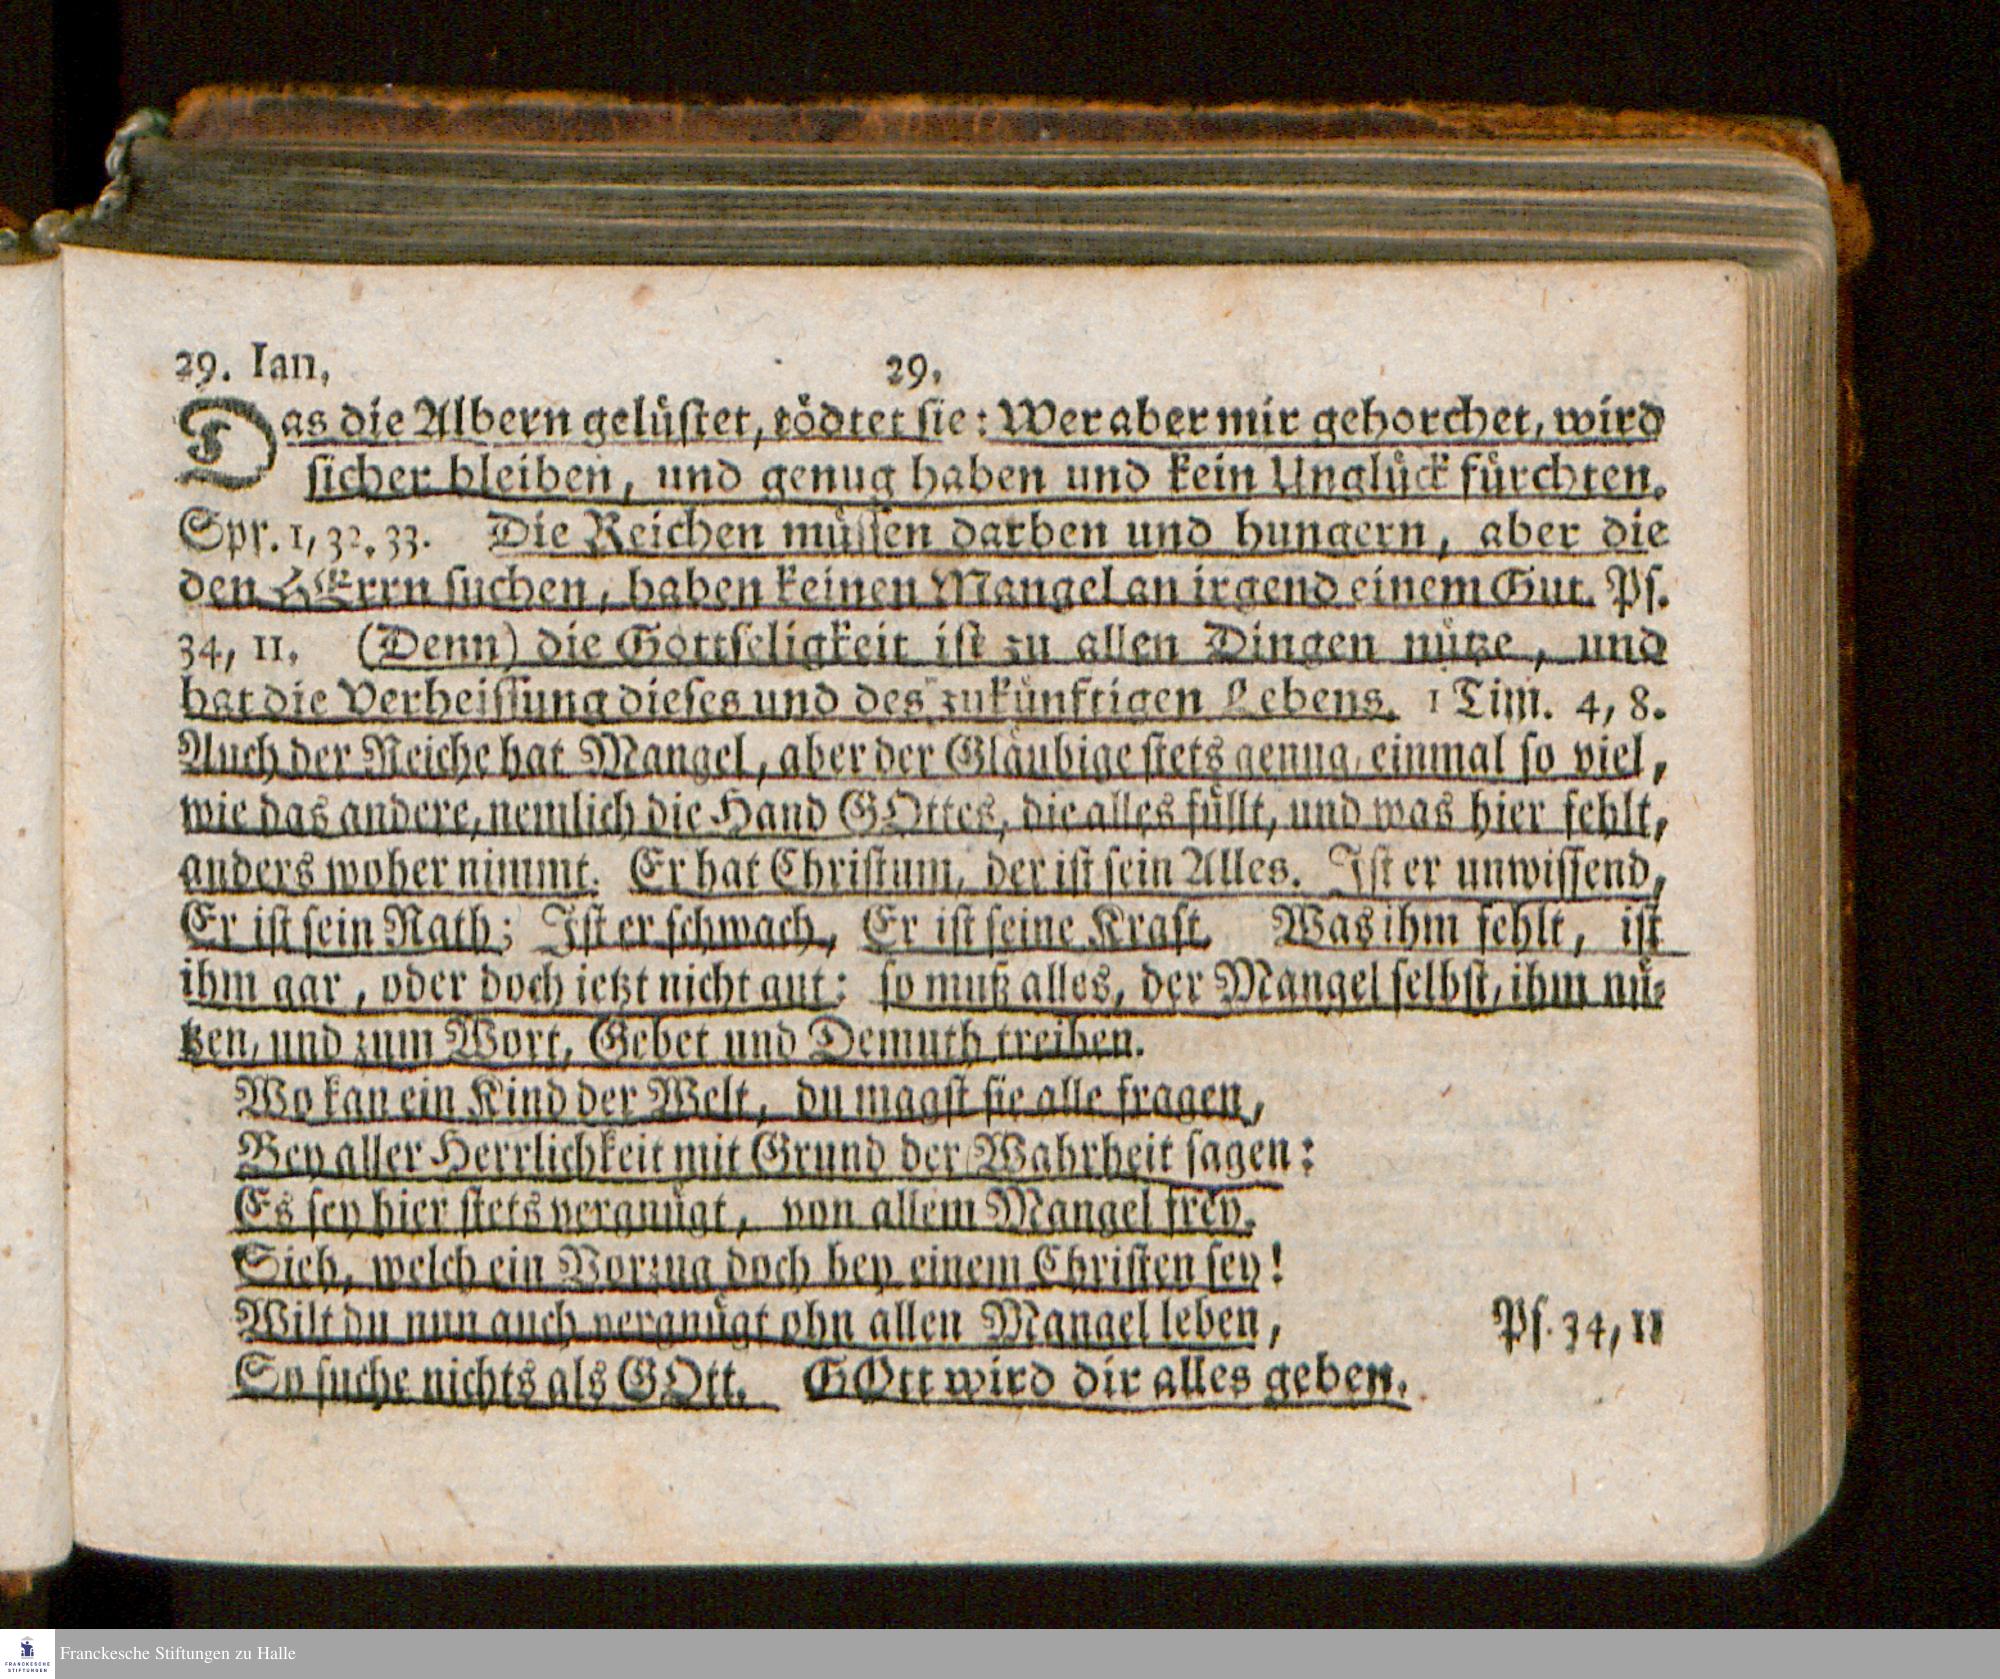 29. Ian, 29,
Das die Albern gelüſtet, tödtet ſie: Wer aber mir gehorchet, wird
ſicher bleiben, und genug haben und kein Unglück fürchten.
Spr. 1, 32. 33. Die Reichen müſſen darben und hungern, aber die
den HErrn ſuchen, haben keinen Mangel an irgend einem Gut. Pſ.
34, 11. (Denn) die Gottſeligkeit iſt zu allen Dingen nütze, und
hat die Verheiſſung dieſes und des zukünftigen Lebens. 1 Tim. 4, 8.
Auch der Reiche hat Mangel, aber der Gläubige ſtets genug, einmal ſo viel,
wie das andere, nemlich die Hand GOttes, die alles füllt, und was hier fehlt,
anders woher nimmt. Er hat Chriſtum, der iſt ſein Alles. Iſt er unwiſſend,
Er iſt ſein Rath; Iſt er ſchwach, Er iſt ſeine Kraft. Was ihm fehlt, iſt
ihm gar, oder doch ietzt nicht gut: ſo muß alles, der Mangel ſelbſt, ihm nü-
tzen, und zum Wort, Gebet und Demuth treiben.
Wo kan ein Kind der Welt, du magſt ſie alle fragen,
Bey aller Herrlichkeit mit Grund der Wahrheit ſagen:
Es ſey hier ſtets vergnügt, von allem Mangel frey.
Sieh, welch ein Vorzug doch bey einem Chriſten ſey!
Wilt du nun auch vergnügt ohn allen Mangel leben, Pſ. 34, 11
So ſuche nichts als GOtt. GOtt wird dir alles geben.
FRANCKESCHE
STIFTUNGEN
Franckesche Stiftungen zu Halle